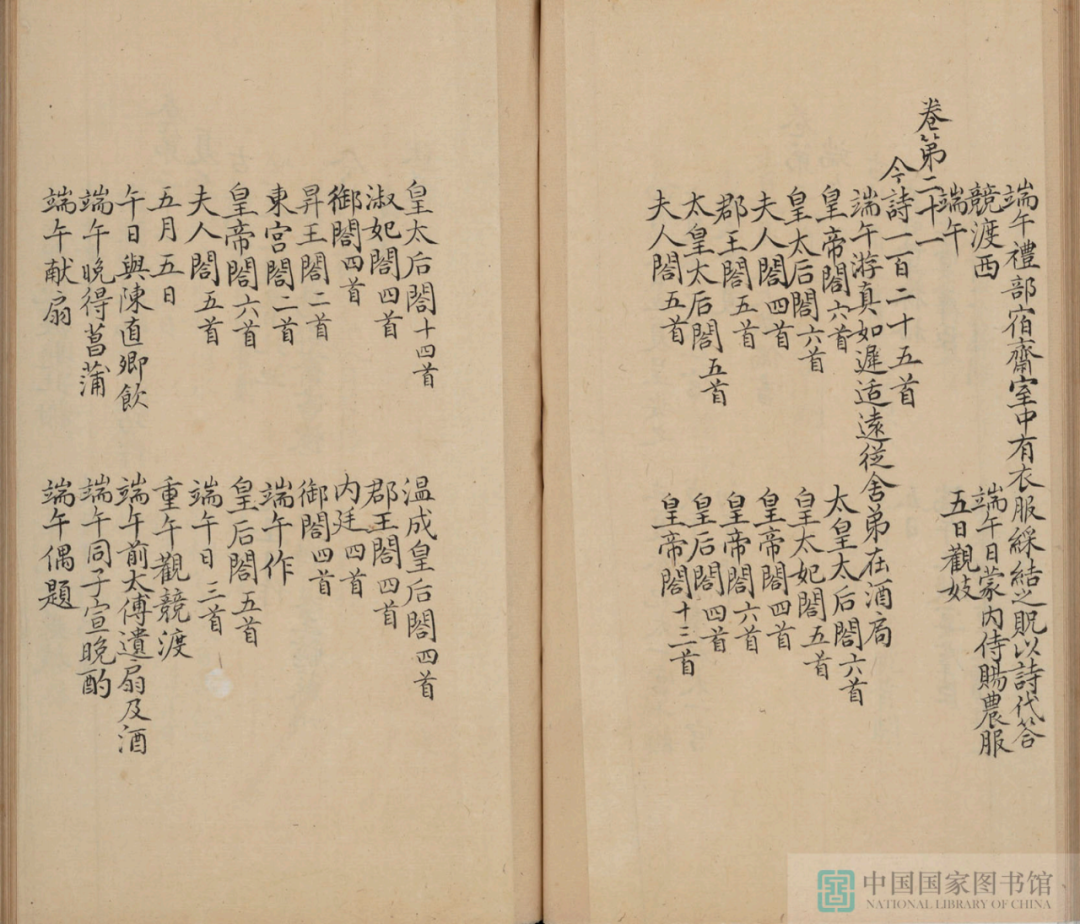 端午禮部宿齋室中有衣服綵結之貺以詩代答
競渡西 端午日蒙內侍賜農服
端午 五日觀妓
卷第二十一
今詩一百二十五首
端午游真如遲适遠從舍弟在酒局
皇帝閤六首 太皇太后閤六首
皇太后閤六首 皇太妃閤五首
夫人閤四首 皇帝閤四首
郡王閤五首 皇帝閤六首
太皇太后閤五首 皇后閤四首
夫人閤五首 皇帝閤十三首
皇太后閤十四首 温成皇后閤四首
淑妃閤四首 郡王閤四首
御閤四首 内廷四首
昇王閤二首 御閤四首
東宮閤二首 端午作
皇帝閤六首 皇后閤五首
夫人閤五首 端午日三首
五月五日 重午觀競渡
午日與陳直卿飲 端午前太傅遺扇及酒
端午晚得菖蒲 端午同子宣晚酌
端午献扇 端午偶題
中国国家图书馆
NATIONAL LIBRARY OF CHINA